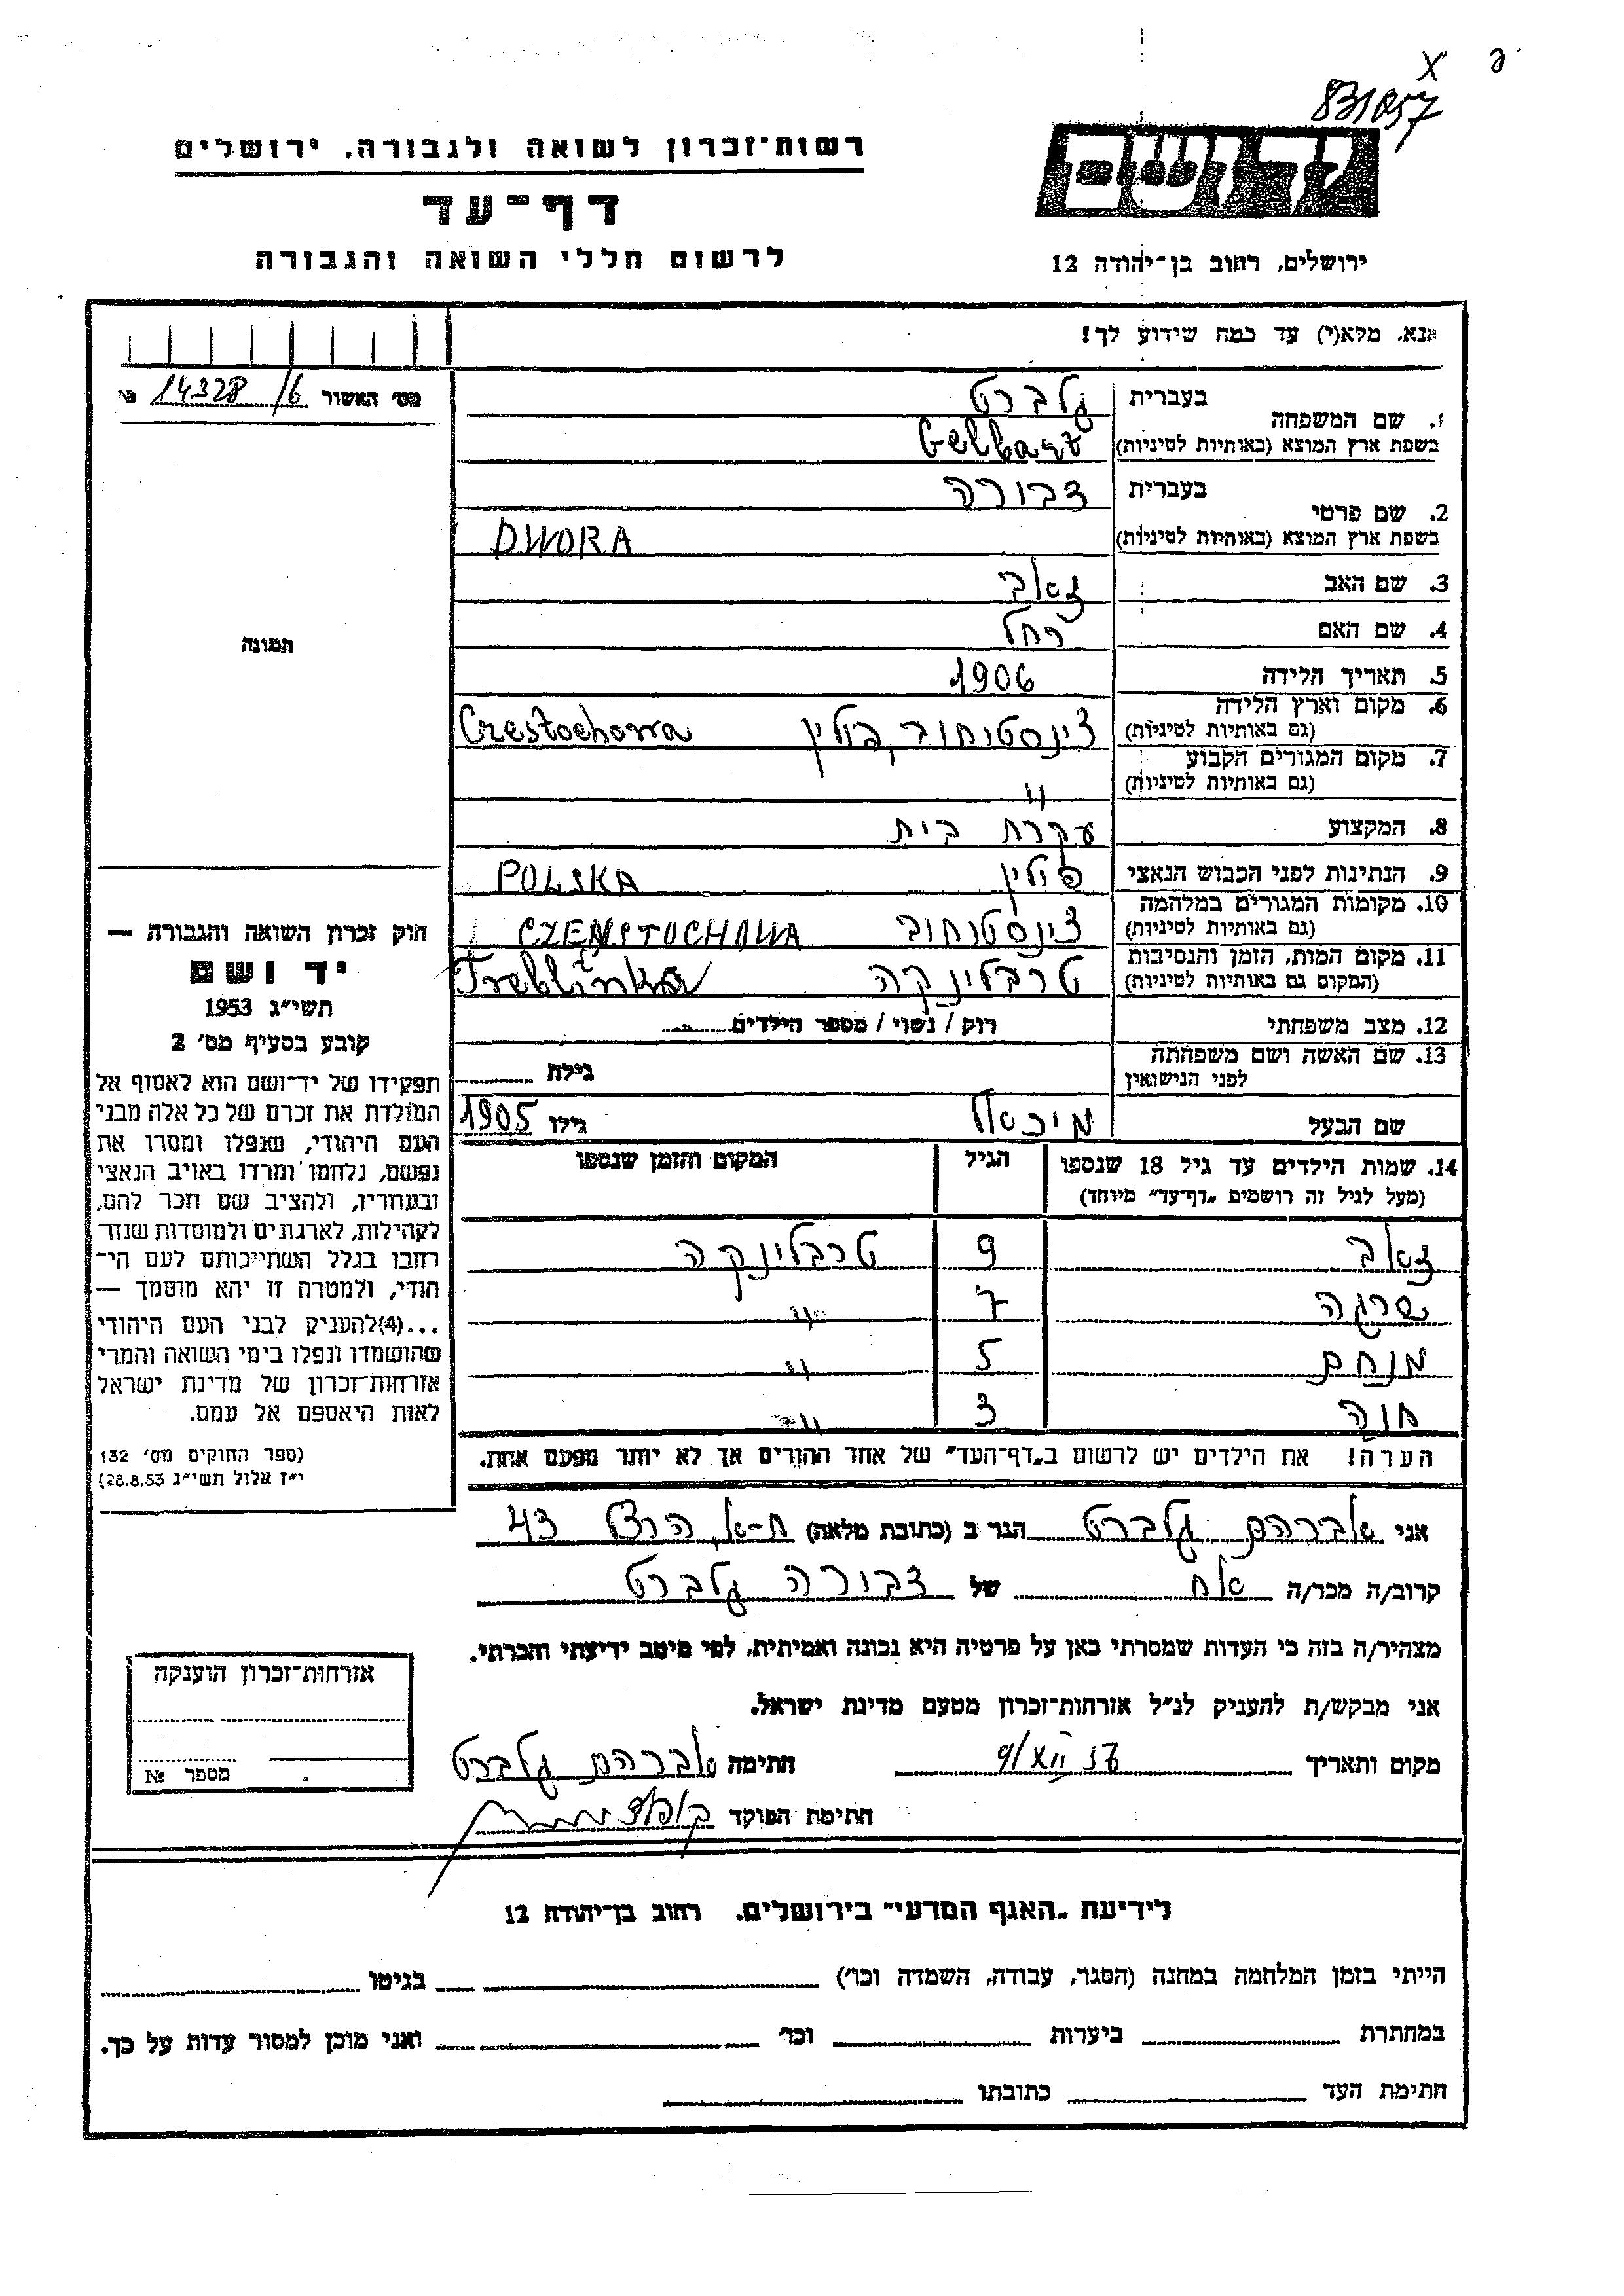 X
831057
רשות־זכרון לשואה ולגבורה, ירושלים
ידושם
דף־עד
לרשום חללי השואה והגבורה
ירושלים, רחוב בן־יהודה 12
אנא, מלא(י) עד כמה שידוע לך!
מס׳ האשור 14328/6 №
1. שם המשפחה
בעברית גלברט
בשפת ארץ המוצא (באותיות לטיניות) Gelbart
2. שם פרטי
בעברית דבורה
בשפת ארץ המוצא (באותיות לטיניות) DWORA
3. שם האב זאב
4. שם האם רחל
תמונה
5. תאריך הלידה 1906
6. מקום וארץ הלידה
(גם באותיות לטיניות) צ׳נסטוחוב, פולין Czestochowa
7. מקום המגורים הקבוע
(גם באותיות לטיניות) "
8. המקצוע עקרת בית
9. הנתינות לפני הכבוש הנאצי פולין POLSKA
10. מקומות המגורים במלחמה
(גם באותיות לטיניות) צ׳נסטוחוב CZENSTOCHOWA
11. מקום המות, הזמן והנסיבות
(המקום גם באותיות לטיניות) טרבלינקה Treblinka
12. מצב משפחתי רוק / נשוי / מספר הילדים
13. שם האשה ושם משפחתה
לפני הנישואין גילה
שם הבעל מיכאל גילו 1905
14. שמות הילדים עד גיל 18 שנספו הגיל המקום והזמן שנספו
(מעל לגיל זה רושמים „דף־עד״ מיוחד)
זאב 9 טרבלינקה
שרגה 7 "
מנחם 5 "
חנה 3 "
הערה! את הילדים יש לרשום ב„דף־העד״ של אחד ההורים אך לא יותר מפעם אחת.
חוק זכרון השואה והגבורה —
יד ושם
תשי״ג 1953
קובע בסעיף מס׳ 2
תפקידו של יד־ושם הוא לאסוף אל
המולדת את זכרם של כל אלה מבני
העם היהודי, שנפלו ומסרו את
נפשם, נלחמו ומרדו באויב הנאצי
ובעוזריו, ולהציב שם וזכר להם,
לקהילות, לארגונים ולמוסדות שנח־
רבו בגלל השתייכותם לעם הי־
הודי, ולמטרה זו יהא מוסמך —
...(4)להעניק לבני העם היהודי
שהושמדו ונפלו בימי השואה והמרי
אזרחות־זכרון של מדינת ישראל
לאות היאספם אל עמם.
(ספר החוקים מס׳ 132
י״ז אלול תשי״ג 28.8.53)
אני אברהם גלברט הגר ב (כתובת מלאה) ת-א, הרצל 43
קרוב/ה מכר/ה אח של דבורה גלברט
מצהיר/ה בזה כי העדות שמסרתי כאן על פרטיה היא נכונה ואמיתית, לפי מיטב ידיעתי והכרתי.
אני מבקש/ת להעניק לנ״ל אזרחות־זכרון מטעם מדינת ישראל.
מקום ותאריך 9/XII 57 חתימה אברהם גלברט
חתימת הפוקד
אזרחות־זכרון הוענקה
מספר №
לידיעת „האגף המדעי״ בירושלים, רחוב בן־יהודה 12
הייתי בזמן המלחמה במחנה (הסגר, עבודה, השמדה וכו׳) בגיטו
במחתרת ביערות וכו׳ ואני מוכן למסור עדות על כך.
חתימת העד כתובתו